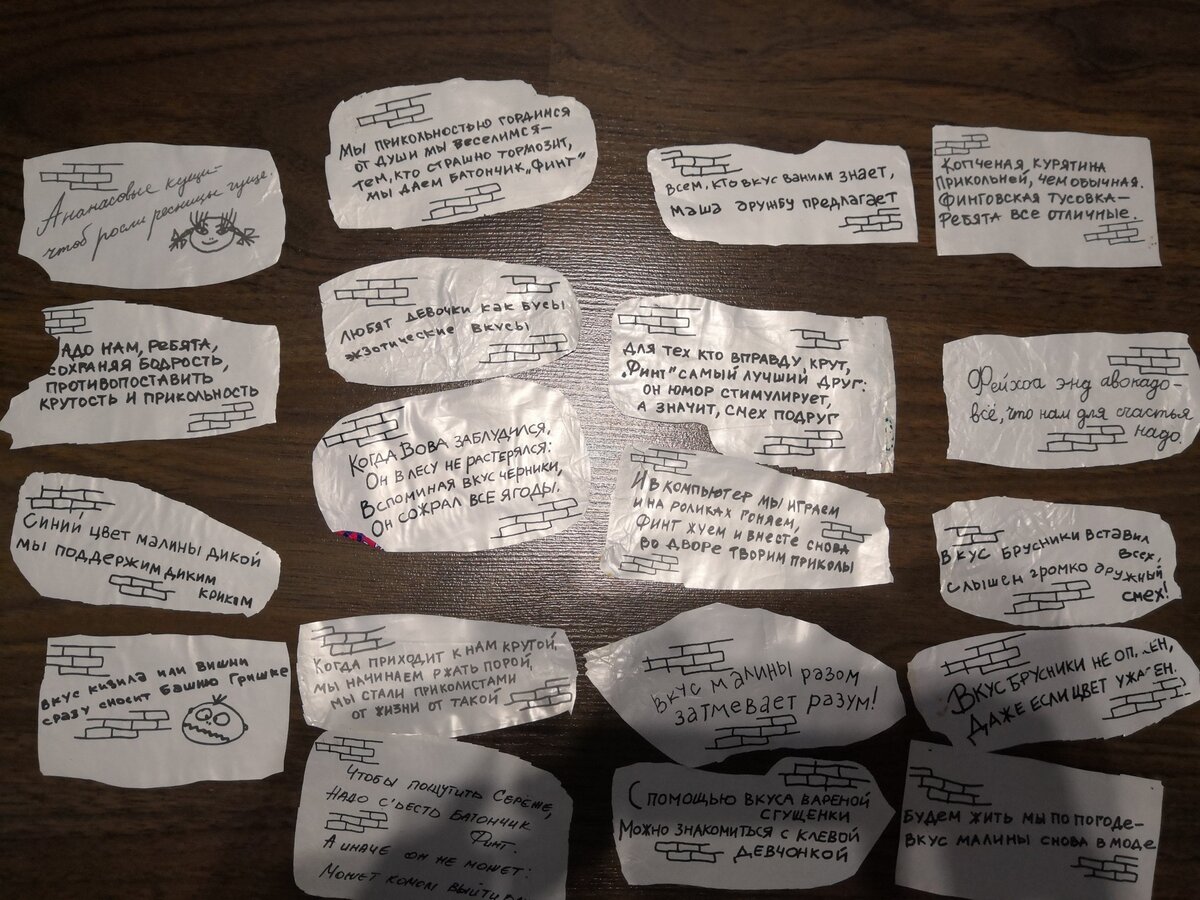 Ананасовые кущи-
чтоб росли ресницы гуще.
Мы прикольностью гордимся
от души мы веселимся-
тем, кто страшно тормозит,
мы даем батончик „Финт"
Всем, кто вкус ванили знает,
Маша дружбу предлагает
Копченая курятина
Прикольней, чем обычная.
Финговская тусовка-
Ребята все отличные.
адо нам, ребята,
сохраняя бодрость,
противопоставить
крутость и прикольность
Любят девочки как бусы
экзотические вкусы
Для тех кто вправду, крут,
„Финт" самый лучший друг:
он юмор стимулирует,
а значит, смех подруг
Фейхоа энд авокадо-
всё, что нам для счастья
надо.
Когда Вова заблудился,
Он в лесу не растерялся:
Вспоминая вкус черники,
Он сожрал все ягоды.
И в компьютер мы играем
и на роликах гоняем,
Финт жуем и вместе снова
во дворе творим приколы
Синий цвет малины дикой
мы поддержим диким
криком
Вкус брусники вставил
всех,
слышен громко дружный
смех!
Вкус кизила или вишни
сразу сносит башню Гришке
Когда приходит к нам крутой,
мы начинаем ржать порой,
мы стали приколистами
от жизни от такой
Вкус малины разом
затмевает разум!
Вкус брусники не
Даже если цвет
Чтобы пошутить Серёже,
Надо съесть батончик
Финт.
А иначе он не может:
Может комом выйти
С помощью вкуса вареной
сгущенки
Можно знакомиться с клевой
девчонкой
Будем жить мы по погоде-
Вкус малины снова в моде